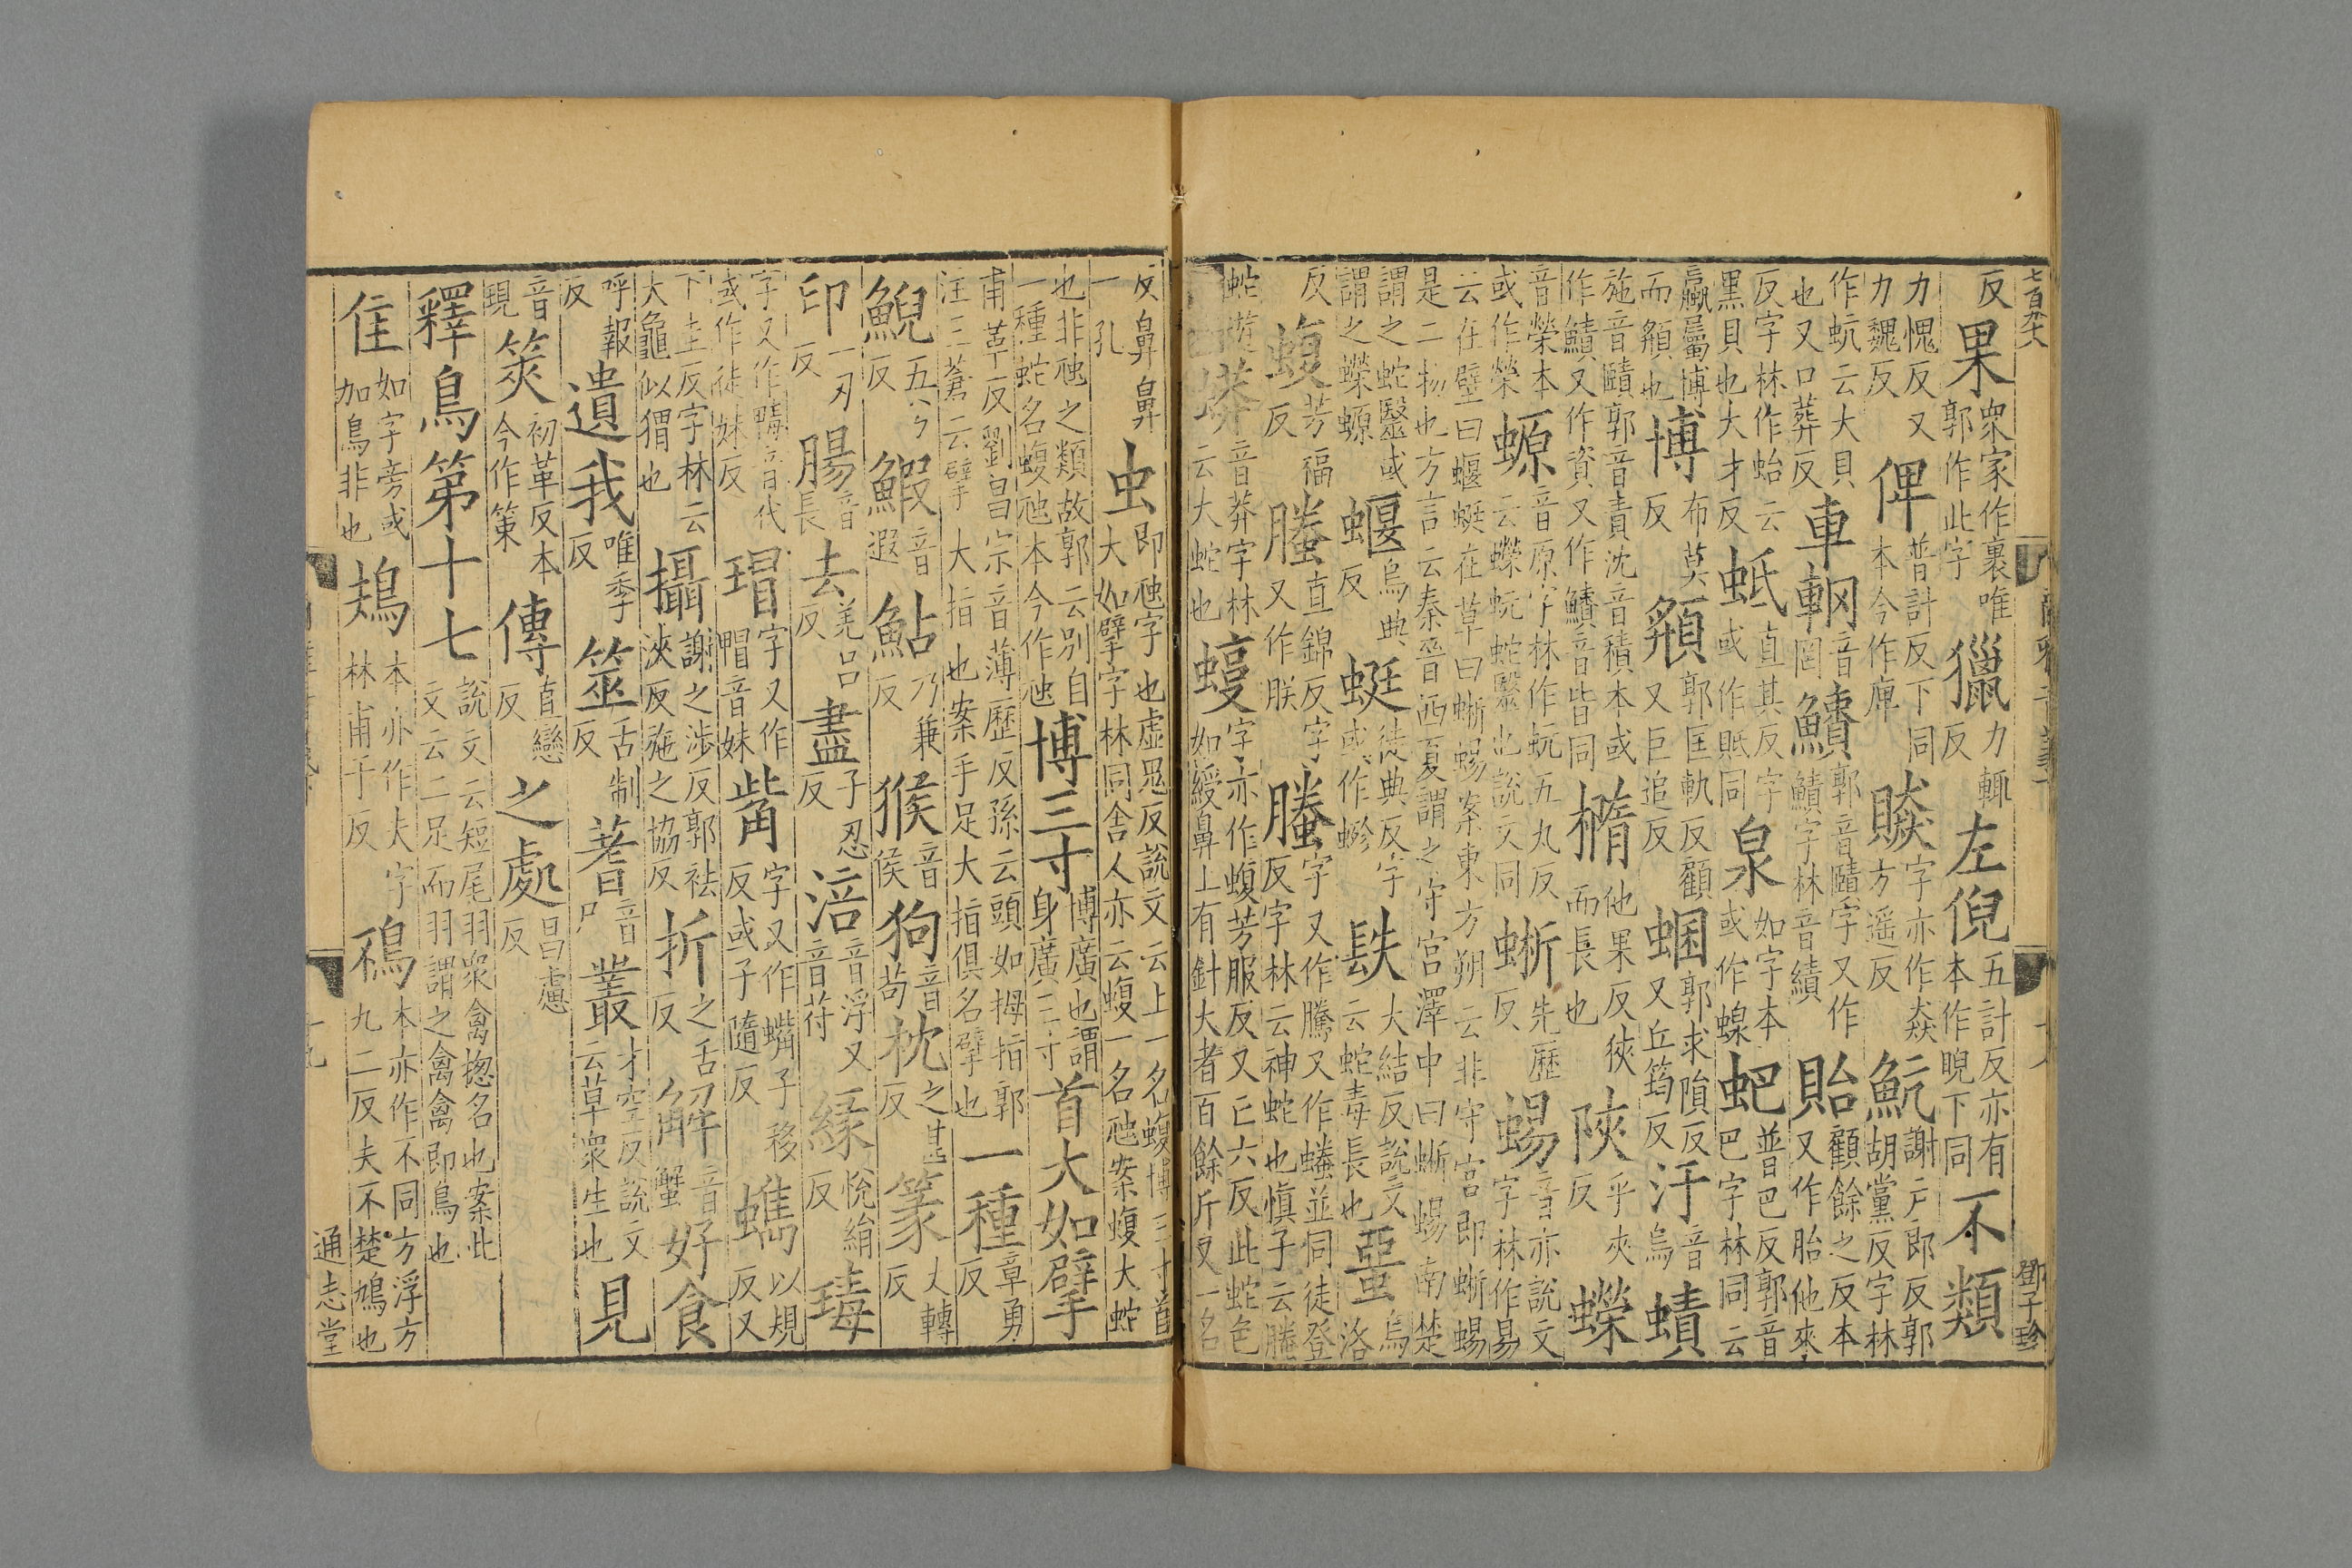 反果衆家作裹唯郭作此字獵力輒反左倪五計反亦有本作睨下同不類
力愧反又力魏反俾普計反下同本今作庳賧字亦作猋方遥反魧謝戸郎反郭胡黨反字林
作蚢云大貝也又口葬反車輞音罔鱝郭音賾字又作鰿字林音績貽顧餘之反本又作胎他來
反字林作蛤云黑貝也大才反蚳直其反字或作貾同泉如字本或作螝蚆普巴反郭音巴字林同云
蠃屬博而頯也博布莫反頯郭匡軌反顧又巨追反蜠郭求隕反又丘筠反汙音烏蟦
施音賾郭音責沈音積本或作鰿又作資又作鱝音皆同橢他果反狹而長也陜乎夾反蠑
音榮本或作榮螈音原字林作蚖五丸反云蠑蚖蛇醫也說文同蜥先歷反蜴音亦說文字林作易
云在壁曰蝘蜓在草曰蜥蜴案東方朔云非守宮即蜥蜴
是二物也方言云秦晉西夏謂之守宮澤中曰蜥蜴南楚
謂之蛇醫或謂之蠑螈蝘烏典反蜓徒典反字或作蝘镻大結反說文云蛇毒長也蝁烏洛
反蝮芳福反螣直錦反字又作朕螣字又作騰又作蟮並同徒登反字林云神蛇也愼子云螣
蛇遊蟒音莽字林云大蛇也蝮字亦作蝜芳服反又匹六反此蛇色如綬鼻上有針大者百餘斤又一名
反鼻鼻一孔虫即虺字也虛鬼反說文云上一名蝮博三寸首大如擘字林同舍人亦云蝮一名虺案蝮大蛇
也非虺之類故郭云別自一種蛇名蝮虺本今作虺博三寸博廣也謂身廣三寸首大如擘
甫革反劉昌宗音薄歷反孫云頭如拇指郭注三蒼云擘大指也案手足大指俱名擘也一種章勇反
鯢五兮反鰕音遐鮎乃兼反猴音侯狗音苟枕之甚反篆丈轉反
印一刃反腸音長去羌呂反盡子忍反涪音浮又音苻緣悅絹反瑇
字又作蝳音代或作徒妹反瑁字又作帽音妹觜字又作蟕子移反或子隨反蠵以規反又
下圭反字林云大龜似猬也攝謝之涉反郭袪浹反施之協反折之舌反解音蟹好食
呼報反遺我唯季反筮舌制反蓍音尸叢才空反說文云草衆生也見
音現筴初革反本今作策傳直戀反之處昌慮反
釋鳥第十七說文云短尾羽衆禽揔名也案此文云二足而羽謂之禽禽即鳥也
隹如字旁或加鳥非也鳺本亦作夫字林甫于反鳻本亦作不同方浮方九二反夫不楚鳩也
七百九十六
鄧子珍
通志堂